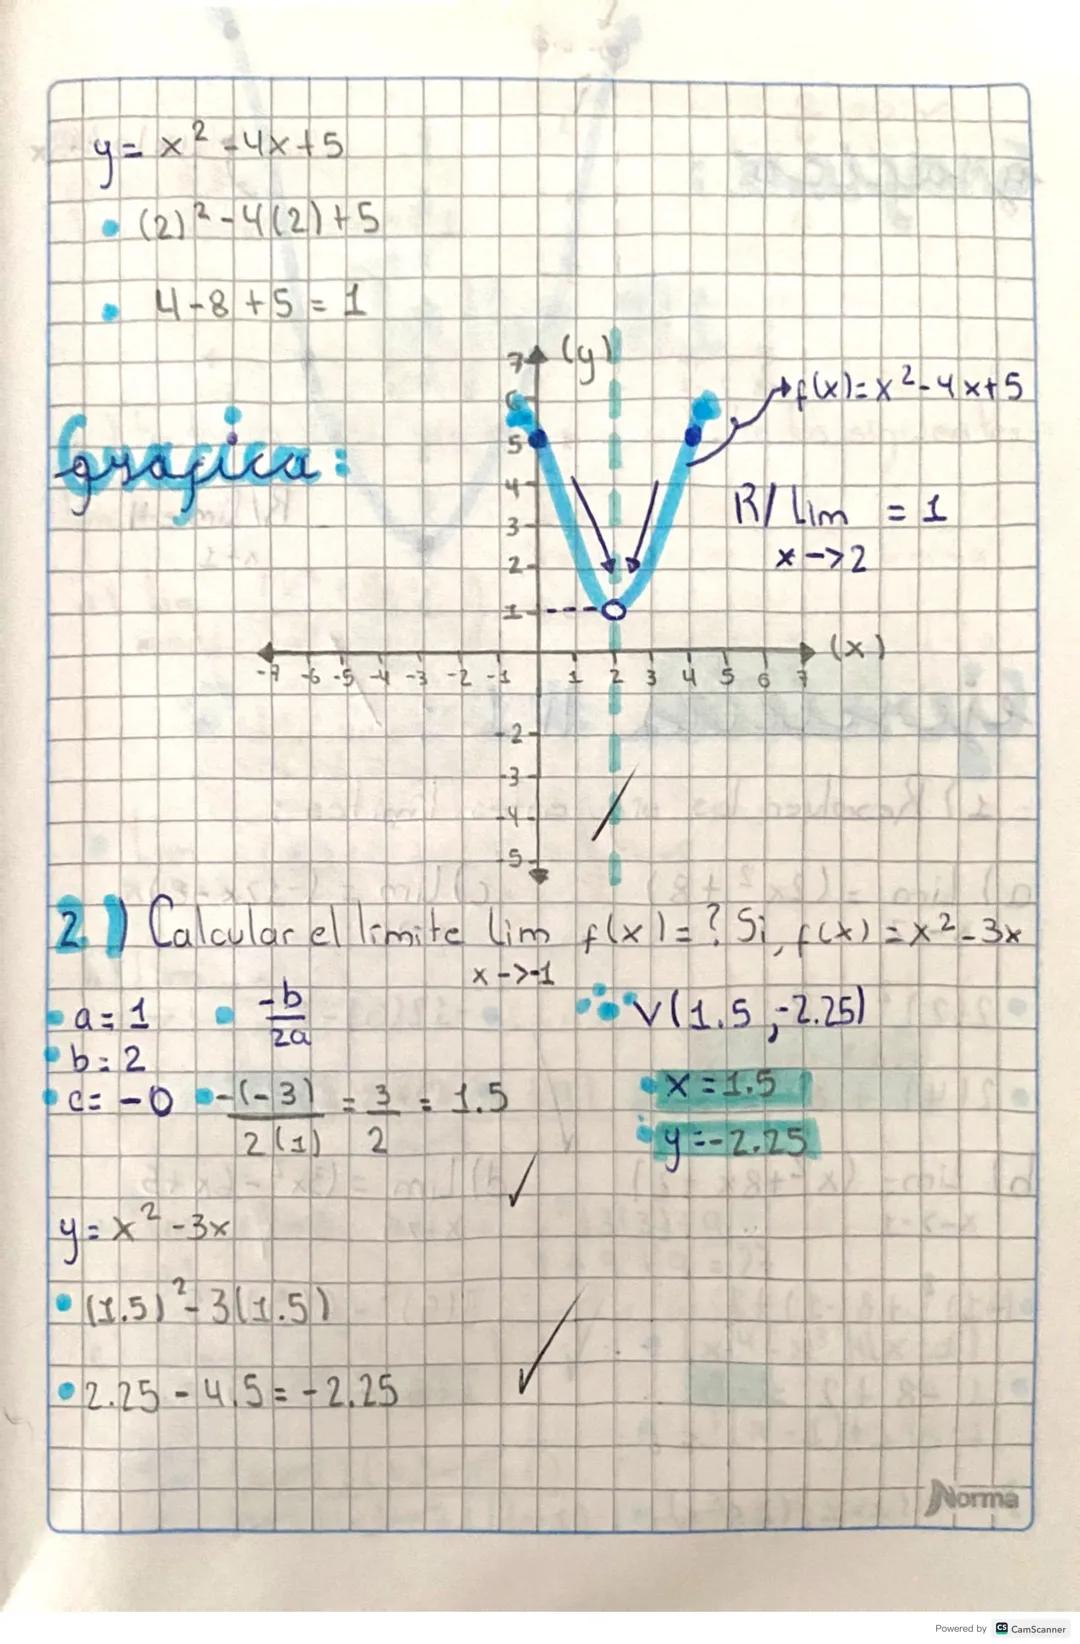 y = x² - 4x + 5
• (2)² - 4(2) + 5
• 4 - 8 + 5 = 1
(y)
7
6
5
4
3
2
1
f(x) = x² - 4x + 5
gráfica:
R/ lim = 1
x -> 2
(x)
-7 -6 -5 -4 -3 -2 -1 1 2 3 4 5 6 7
-2
-3
-4
-5
2) Calcular el límite lim f(x) = ? Si, f(x) = x² - 3x
x -> -1
• a = 1 • -b/2a ∴ V(1.5, -2.25)
• b = 2
• c = -0 • -(-3)/2(1) = 3/2 = 1.5
• x = 1.5
• y = -2.25
y = x² - 3x
• (1.5)² - 3(1.5)
• 2.25 - 4.5 = -2.25
Norma
Powered by CS CamScanner